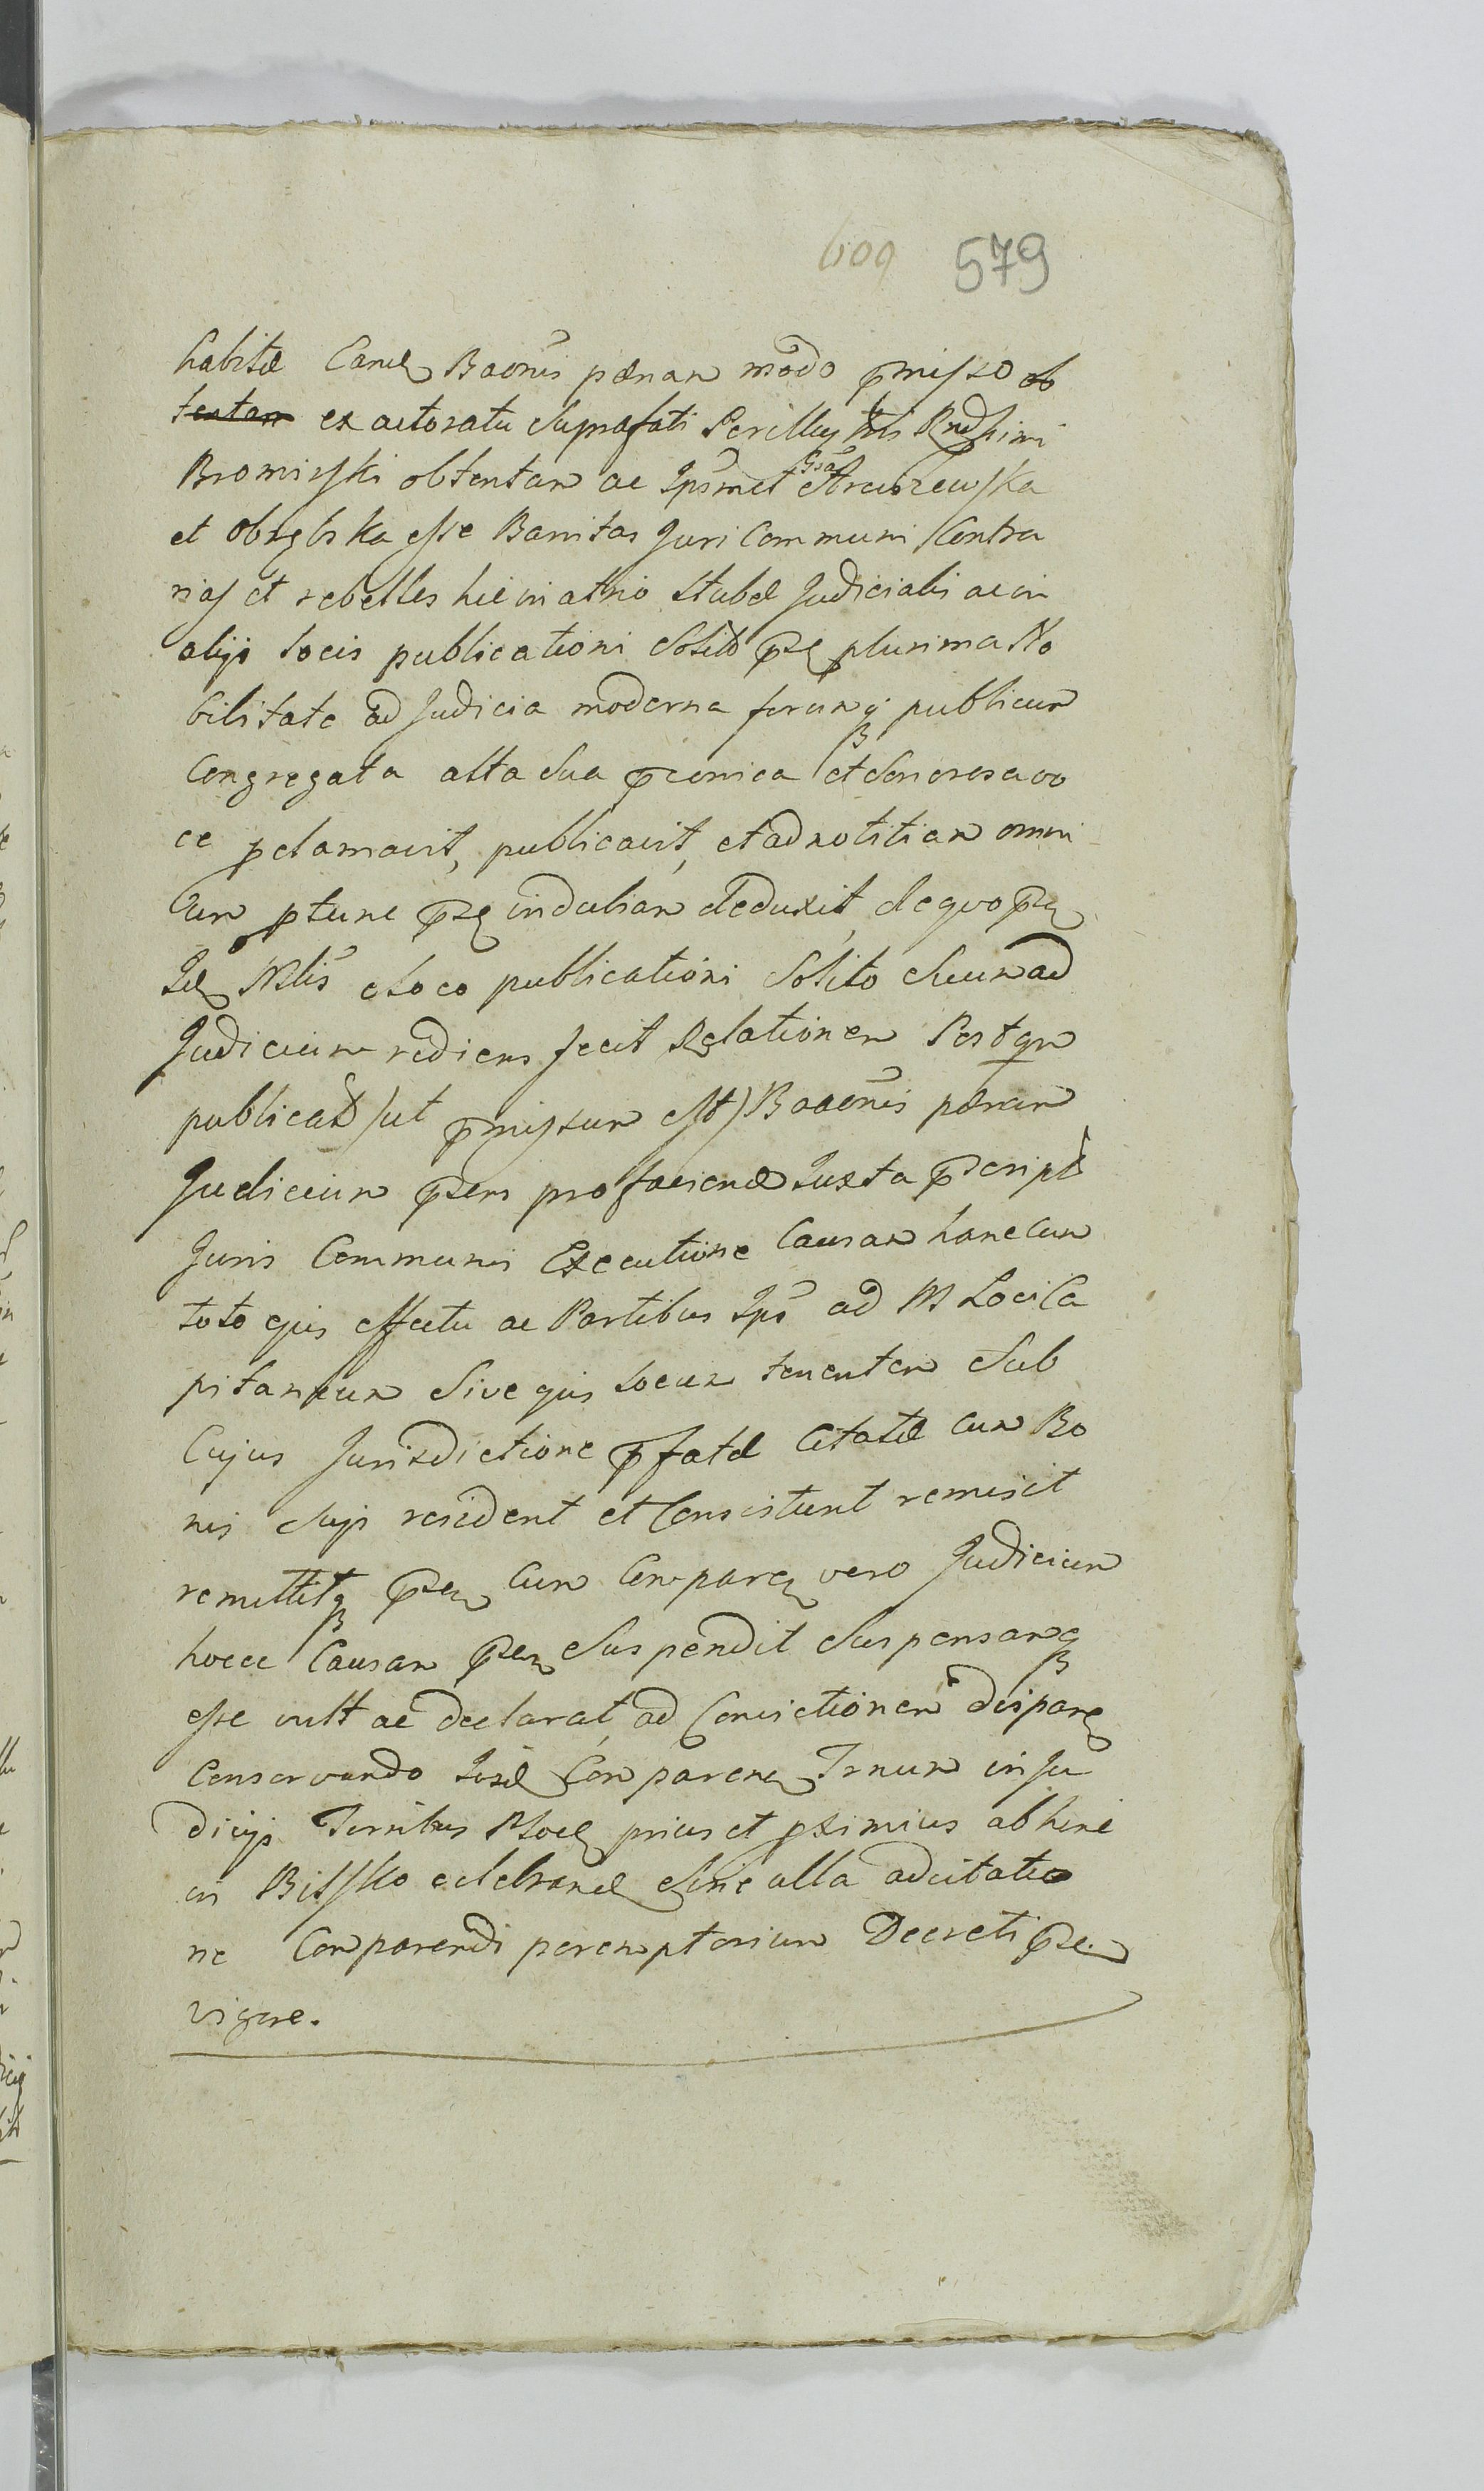 609 579
habitæ Eand Baonis pænam modo pmisso ob
tentam ex actoratu Suprafati Perillus
Bromirski obtentam ac Ipsmet Gsa
et esse Bannitas Juri Communi Contra
rias et rebelles hic in atrio Stubæ Judicialis ac in
alijs Locis publicationi Solitis plurima No
bilitate ad Judicia moderna forumq publicum
Congregata alta Sua pconica et Sonorosa vo
ce pclamavit, publicavit, et ad notitiam omni
um ptunc indubiam deduxit, de quo
Id Mlis Loco publicationi Solito Suum ad
Judicium rediens fecit Relationem Postqm
publicat /ut pmissum est/ Baaonis pænam
Judicium psens pro faciend Juxta pscript
Juris Communis Executione Causam hanc cum
toto ejus effectu ac Partibus Ips ad M Loci Ca
pitaneum Sive ejus Locum tenentem Sub
Cujus Jurisdictione pfatæ Citatæ cum Bo
nis Suis resident et Consistunt remisit
remittitq Cum Compare vero Judicium
hocce Causam Suspendit Suspensamq
esse vult ac declarat, ad Convictionem dispare
Conservando Comparen Trnum in Ju
dicijs Terribus prius et pximius abhinc
in Bilsko celebrand Sine ulla adcitatio
ne Comparendi peremptorium Decreti
vigore.